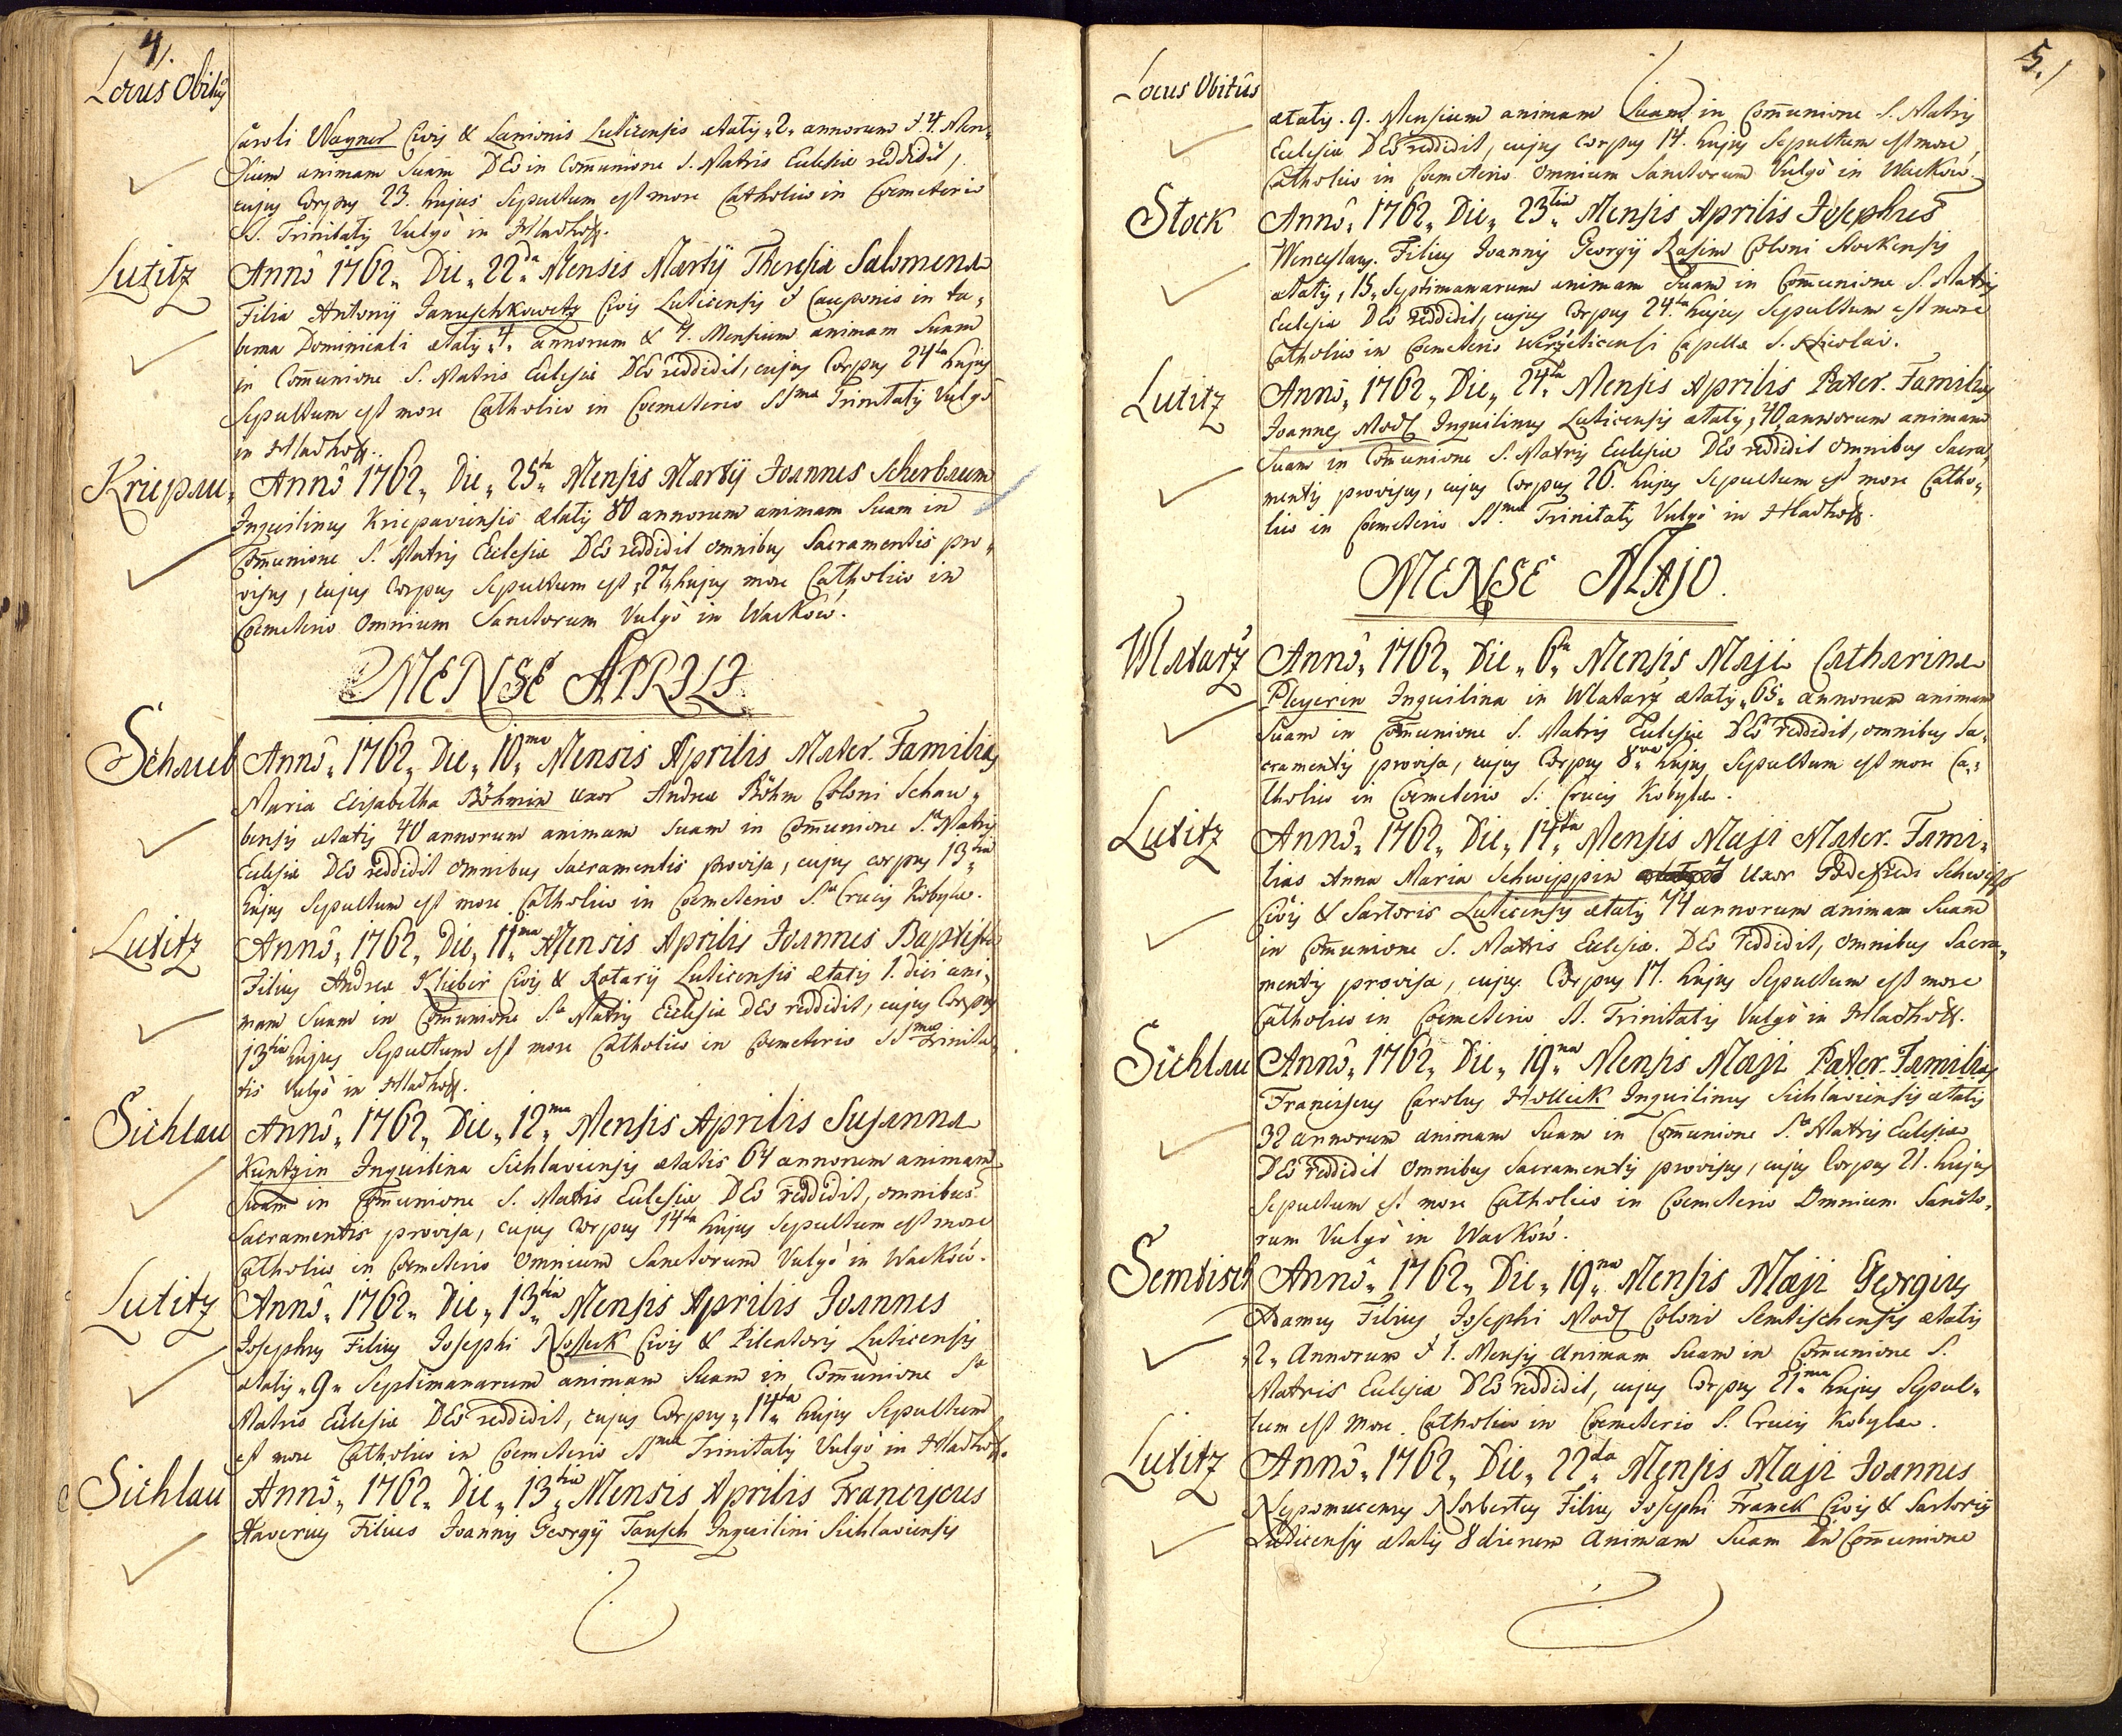 4.
Locus Obitûs
Caroli Wagner Civis & Lanionis Luticensis ætatis „2„ annorum & 4. Men„
sium animam suam DEo in Com̄unione S. Matris Ecclesiæ reddidit,
cujus Corpus 23. hujus Sepultum est more Catholico in Cœmeterio
SS. Trinitatis Vulgò in Hladhoſt.
Lutitz Annô 1762„ Die„ 22da Mensis Martÿ Theresia Salomena
Filia Antonÿ Januschkowetz Civis Luticensis & Cauponis in ta„
berna Dominicali ætatis „4„ annorum & 7. Mensium animam suam
in Com̄unione S. Matris Ecclesiæ DEo reddidit, cujus Corpus 24ta hujus
Sepultum est more Catholico in Cœmeterio SSmæ Trinitatis Vulgò
in Hladhoſt..
Kriepau„ Annô 1762„ Die„ 25ta Mensis Martÿ Joannes Scherbaum
Inquilinus Kriepaviensis ætatis 80 annorum animam suam in
Com̄unione S. Matris Ecclesiæ DEo reddidit omnibus Sacramentis pro„
visus, cujus Corpus Sepultum est „27„ hujus more Catholico in
Cœmeterio Omnium Sanctorum Vulgò in Wackow.
MENSE APRILI.
Schaub Annô„ 1762„ Die„ 10ma Mensis Aprilis Mater Familias
Maria Elisabetha Böhmin uxor Andreæ Böhm Coloni Schau„
bensis ætatis 40 annorum animam suam in Com̄unione S.æ Matris
Ecclesiæ DEo reddidit omnibus Sacramentis provisa, cujus corpus 13tia
hujus Sepultum est more Catholico in Cœmeterio S.æ Crucis Kobyla.
Lutitz Annô„ 1762„ Die„ 11ma Mensis Aprilis Joannes Baptista
Filius Andreæ Klieber Civis & Rotarÿ Luticensis ætatis 1. diei ani„
mam suam in Com̄unione S.æ Matris Ecclesiæ DEo reddidit, cujus Corpus
13tia hujus Sepultum est more Catholico in Cœmeterio SSmæ Trinita„
tis Vulgò in Hladhoſt.
Sichlau Annô„ 1762„ Die„ 12ma Mensis Aprilis Susanna
Kuntzin Inquilina Sichlaviensis ætatis 64 annorum animam
suam in Com̄unione S. Matris Ecclesiæ DEo reddidit, omnibus
Sacramentis provisa, cujus corpus 14ta hujus Sepultum est more
Catholico in Cœmeterio Omnium Sanctorum Vulgò in Wackow.
Lutitz Annô„ 1762„ Die„ 13tia Mensis Aprilis Joannes
Josephus Filius Josephi Nosseck Civis & Pileatoris Luticensis
ætatis „9„ Septimanarum animam suam in Com̄unione S.æ
Matris Ecclesiæ DEo reddidit, cujus Corpus „14ta„ hujus Sepultum
est more Catholico in Cœmeterio SSmæ Trinitatis Vulgò in Hladhoſt.
Sichlau Annô„ 1762„ Die„ 13tia Mensis Aprilis Franciscus
Xaverius Filius Joannis Georgÿ Tausch Inquilini Sichlaviensis
5.
Locus Obitûs
ætatis. 9. Mensium animam suam in Com̄unione S. Matris
Ecclesiæ DEo reddidit, cujus Corpus 14. hujus Sepultum est more
Catholico in Cœmeterio Omnium Sanctorum Vulgò in Wackow.
Stock Annô„ 1762„ Die„ 23tia Mensis Aprilis Josephus
Wenceslaus. Filius Joannis Georgÿ Rasim Coloni Stockensis
ætatis, 15„ Septimanarum animam suam in Com̄unione S. Matris
Ecclesiæ DEo reddidit, cujus Corpus 24.ta hujus Sepultum est more
Catholico in Cœmeterio Capellæ S. Nicolai.
Lutitz Annô„ 1762„ Die„ 24ta Mensis Aprilis Pater. Familias
Joannes Modl Inquilinus Luticensis ætatis, 40„ annorum animam
suam in Com̄unione S. Matris Ecclesiæ DEo reddidit omnibus Sacra„
mentis provisus, cujus Corpus 26. hujus Sepultum est more Catho„
lico in Cœmeterio SS.mæ Trinitatis Vulgò in Hladhoſt.
MENSE MAJO.
Wlatarz Annô„ 1762„ Die„ 6ta Mensis Maji Catharina
Pleyerin Inquilina in Wlatarz ætatis „65„ annorum animam
suam in Com̄unione S. Matris Ecclesiæ DEo reddidit, omnibus Sa„
cramentis provisa, cujus Corpus 8va hujus Sepultum est more Ca„
tholico in Cœmeterio S. Crucis Kobyla.
Lutitz Annô„ 1762„ Die„ 14ta Mensis Maji Mater. Fami„
lias Anna Maria Schwippin Uxor Godefridi Schwipp
Civis & Sartoris Luticensis ætatis 74 annorum animam suam
in Com̄unione S. Matris Ecclesiæ. DEo reddidit, omnibus Sacra„
mentis provisa, cujus Corpus 17. hujus Sepultum est more
Catholico in Cœmeterio SS. Trinitatis Vulgò in Hladhoſt.
Sichlau Annô„ 1762„ Die„ 19na Mensis Maji Pater. Familias
Franciscus Carolus Holleik Inquilinus Sichlaviensis ætatis
32 annorum animam suam in Com̄unione S.æ Matris Ecclesiæ
DEo reddidit omnibus Sacramentis provisus, cujus Corpus 21. hujus
Sepultum est more Catholico in Cœmeterio Omnium Sancto„
rum Vulgò in Wackow.
Semtisch Annô„ 1762„ Die„ 19na Mensis Maji Georgius
Adamus Filius Josephi Modl Coloni Semtischensis ætatis
„2„ Annorum & 1. Mensis animam suam in Com̄unione S.
Matris Ecclesiæ DEo reddidit, cujus Corpus 21ma hujus Sepul„
tum est more Catholico in Cœmeterio S. Crucis Kobyla.
Lutitz Annô„ 1762„ Die„ 22da Mensis Maji Joannes
Nepomucenus Norbertus Filius Josephi Franck Civis & Sartoris
Luticensis ætatis 8 dierum animam suam in Com̄unione